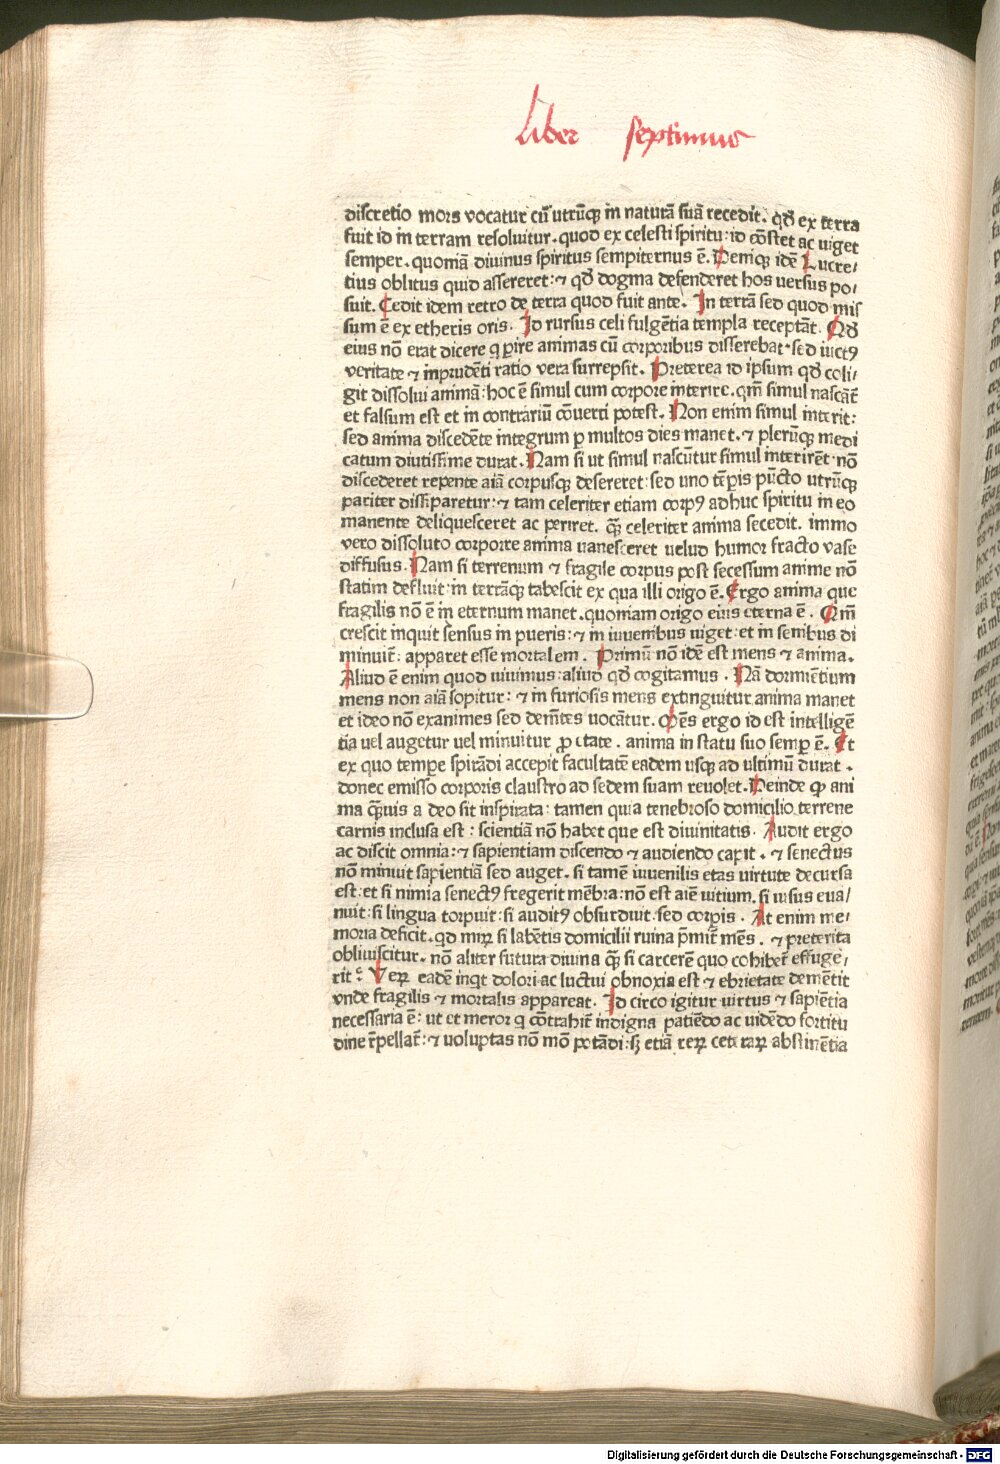 Liber septimus
discretio mors vocatur cū utrūqꝫ in naturā suā recedit. qd̄ ex terra
fuit id in terram resoluitur. quod ex celesti spiritu: id cōstet ac uiget
semper. quoniā diuinus spiritus sempiternus ē. Deniqꝫ idē Lucre/
tius oblitus quid assereret: ⁊ qd̄ dogma defenderet hos uersus po/
suit. Cedit idem retro de terra quod fuit ante. In terrā sed quod mis
sum ē ex etheris oris. Id rursus celi fulgētia templa receptāt. Qd̄
eius nō erat dicere q ꝑire animas cū corporibus disserebat. sed uictꝰ
veritate ⁊ inprudēti ratio vera surrepsit. Preterea id ipsum qd̄ coli/
git dissolui animā: hoc ē simul cum corpore interire. qm̄ simul nascāt̄
et falsum est et in contrariū cōuerti potest. Non enim simul interit:
sed anima discedēte integrum ꝑ multos dies manet. ⁊ plerūqꝫ medi
catum diutissime durat. Nam si ut simul nascūtur simul interirēt nō
discederet repente aiā corpusqꝫ desereret: sed uno tēꝑis pūcto utrūqꝫ
pariter dissiparetur: ⁊ tam celeriter etiam corpꝰ adhuc spiritu in eo
manente deliquesceret ac periret. qꝫ̄ celeriter anima secedit. immo
vero dissoluto corporre anima uanesceret uelud humor fracto vase
diffusus. Nam si terrenum ⁊ fragile corpus post secessum anime nō
statim defluit in terrāqꝫ tabescit ex qua illi origo ē. Ergo anima que
fragilis nō ē in eternum manet. quoniam origo eius eterna ē. Qm̄
crescit inquit sensus in pueris: ⁊ in iuuenibus uiget: et in senibus di
minuit̄: apparet esse mortalem. Primū nō idē est mens ⁊ anima.
Aliud ē enim quod uiuimus: aliud qd̄ cogitamus. Nā dormiētium
mens non aiā sopitur: ⁊ in furiosis mens extinguitur anima manet
et ideo nō exanimes sed demētes uocātur. Mēs ergo id est intelligē
tia uel augetur uel minuitur ꝓ etate. anima in statu suo semꝑ ē. Et
ex quo tempore spirādi accepit facultatē eadem usqꝫ ad ultimū durat.
donec emisso corporis claustro ad sedem suam reuolet. Deinde ꝙ ani
ma qꝫ̄uis a deo sit inspirata: tamen quia tenebroso domicilio terrene
carnis inclusa est: scientiā nō habet que est diuinitatis. Audit ergo
ac discit omnia: ⁊ sapientiam discendo ⁊ audiendo capit. ⁊ senectus
nō minuit sapientiā sed auget. si tamē iuuenilis etas virtute decursa
est: et si nimia senectꝰ fregerit mēbra: nō est aiē uitium. si uisus eua/
nuit: si lingua torpuit: si auditꝰ obsurduit: sed corꝑis. At enim me/
moria deficit. qd mirꝝ si labētis domicilii ruina p̄mit̄ mēs. ⁊ preterita
obliuiscitur. nō aliter futura diuina qꝫ̄ si carcerē quo cohibet̄ effuge/
rit: Verꝝ eadē inqt dolori ac luctui obnoxia est ⁊ ebrietate demētit
vnde fragilis ⁊ mortalis appareat. Id circo igitur uirtus ⁊ sapiētia
necessaria ē: ut et meror q cōtrahit̄ indigna patiēdo ac uidēdo fortitu
dine r̄pellat̄: ⁊ uoluptas nō mō potādi: sꝫ etiā rerꝝ ceterarꝝ abstinētia
Digitalisierung gefördert durch die Deutsche Forschungsgemeinschaft - DFG